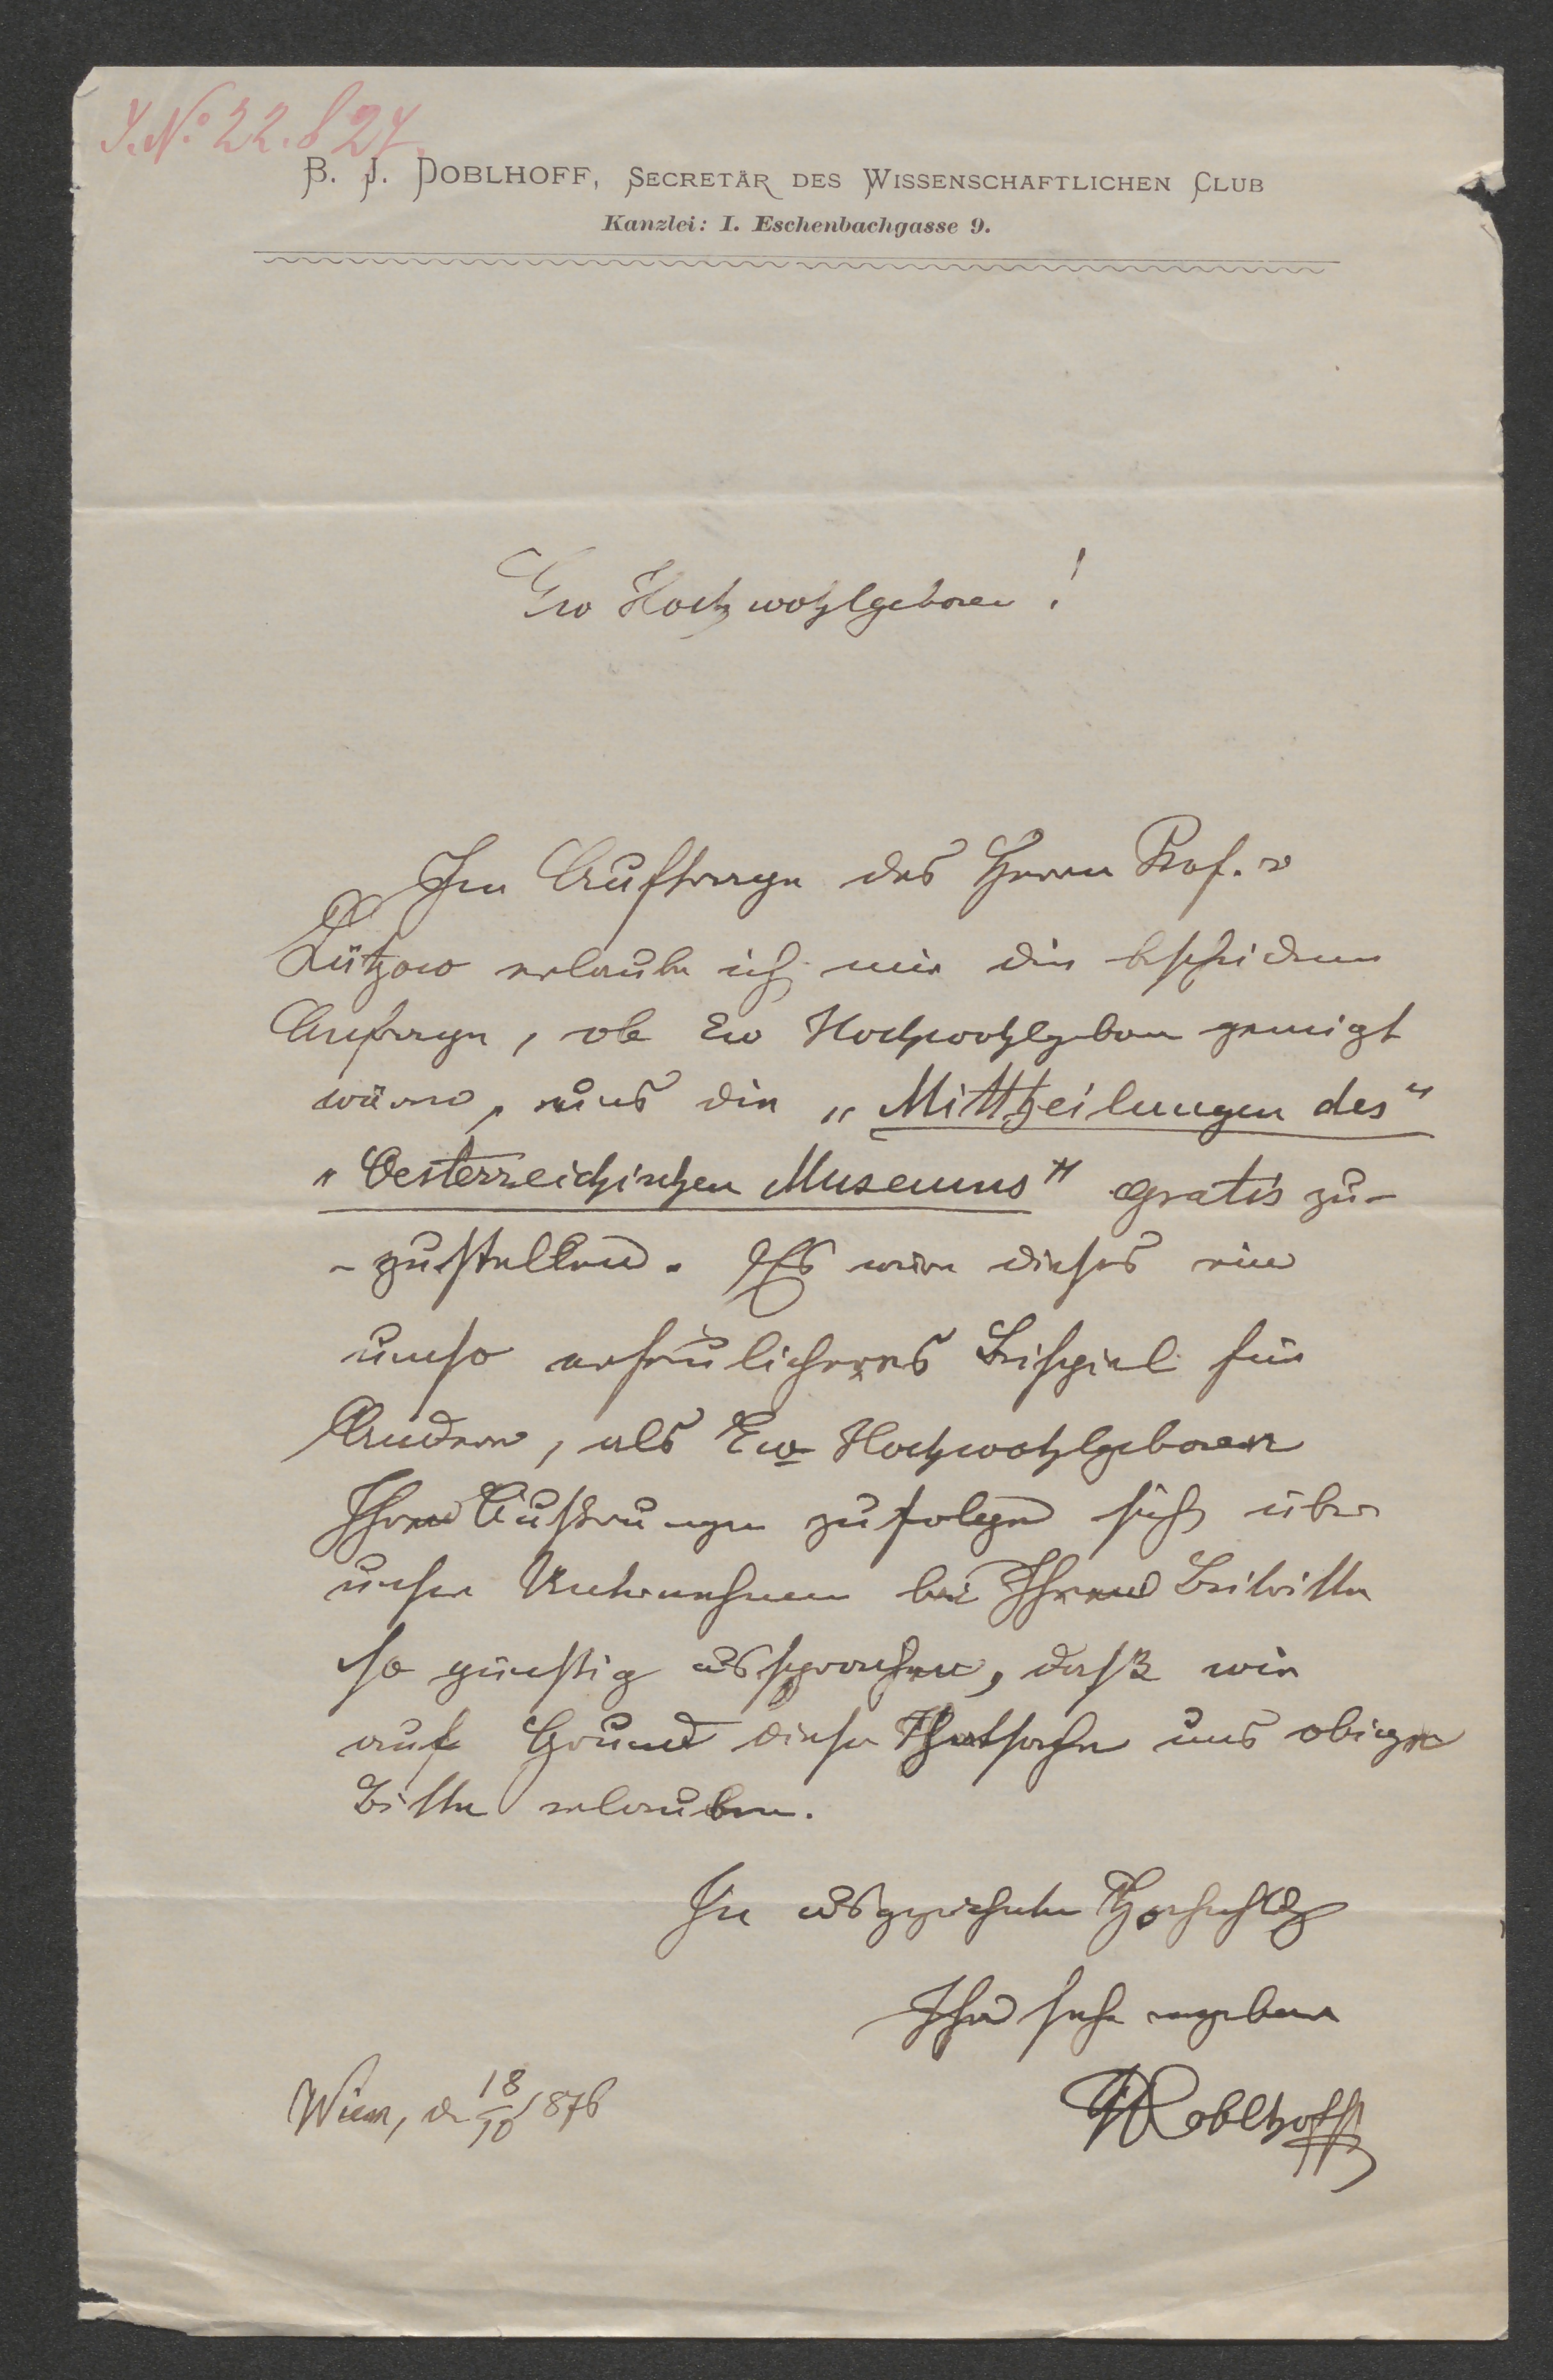 J. No 22.827.
B. J. DOBLHOFF, SECRETÄR DES WISSENSCHAFTLICHEN CLUB
Kanzlei: I. Eschenbachgasse 9.
Ew Hochwohlgeboren!
Im Auftrage des Herrn Prof. v
Lützow erlaube ich mir die bescheidene
Anfrage, ob Ew Hochwohlgeboren geneigt
wären, uns die „Mittheilungen des“
„Oesterreichischen Museums“ gratis zu-
-zustellen. Es wäre dieses ein
umso erfreulicheres Beispiel für
Andere, als Ew Hochwohlgeboren
Ihren Äusserungen zufolge sich über
unser Unternehmen bei Ihrem Beitritte
so günstig aussprachen, dass wir
auf Grund dieser Thatsache uns obige
Bitte erlauben.
In ausgezeichneter Hochachtg
Ihr sehr ergebener
Doblhoff
Wien, d 18/10 1876